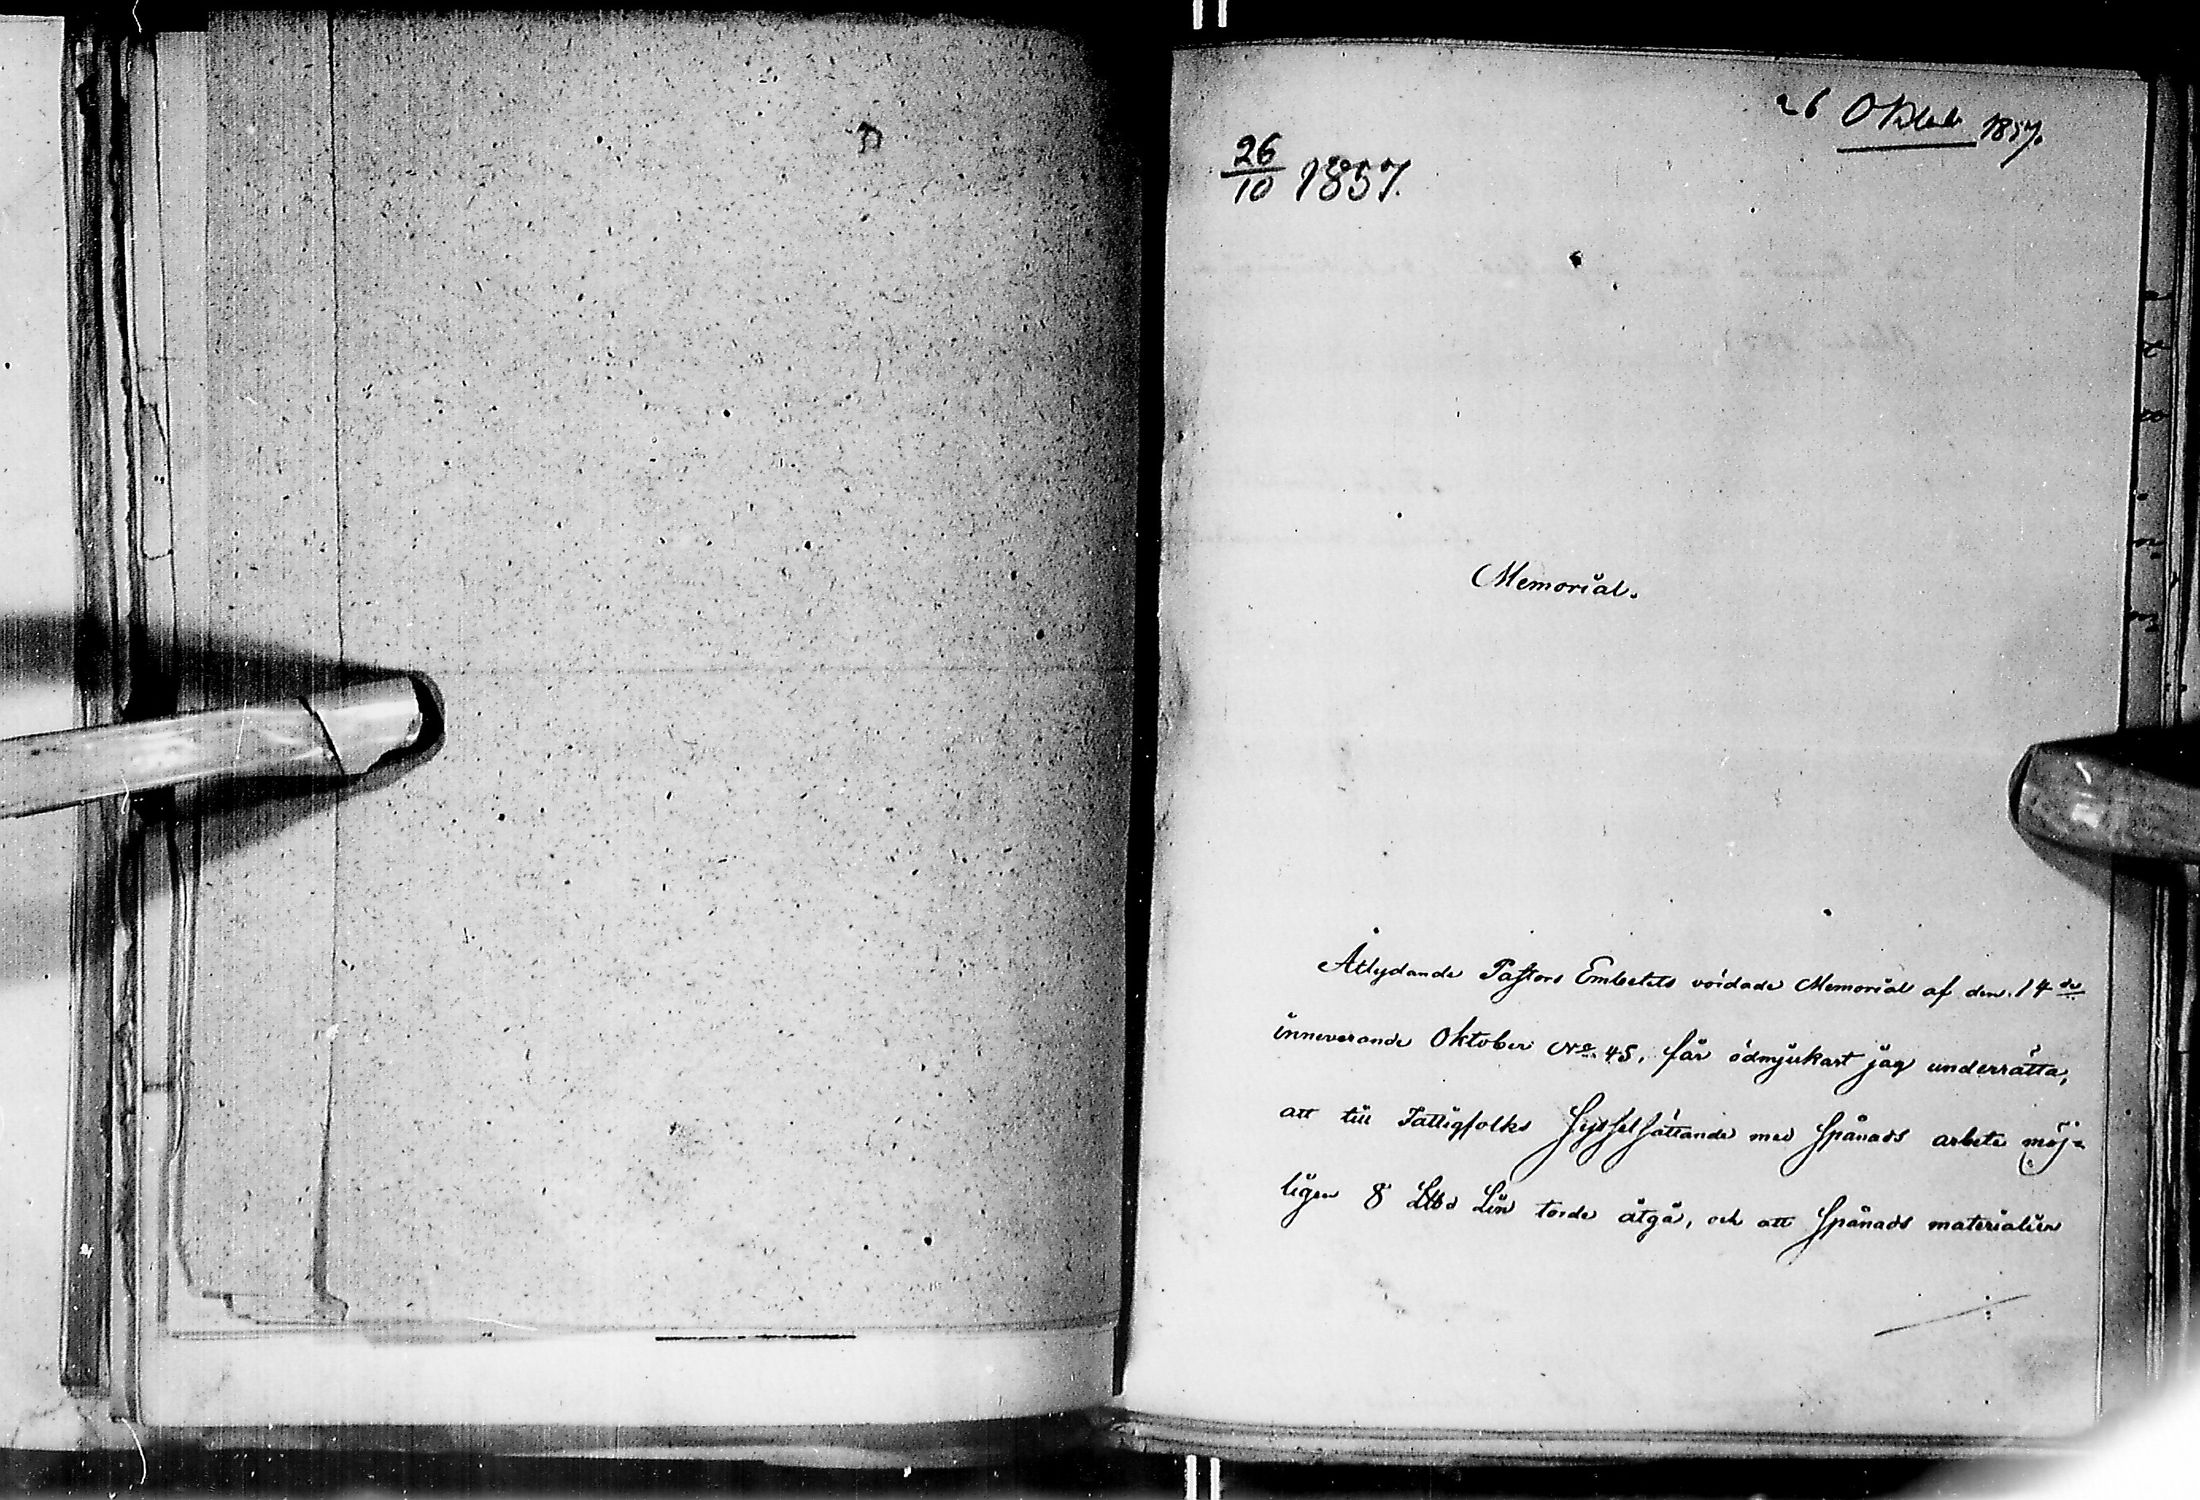 26 Oktob 1857.
26/10 1857.
Memorial.
Åtlydande Pastors Embetets vördade Memorial af den 14de
innevarande Oktober No 45, får ödmjukast jag underrätta,
att till Fattigfolks Sysselsättande med Spånads arbete möj=
ligen 8 L℔d Lin torde åtgå, och att Spånads materialier